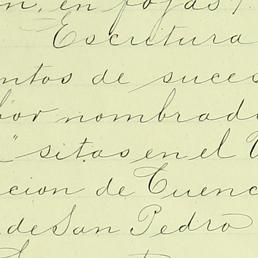 n, en fojas
Escritura
ntos de suces
por nombrad
" sitas en el
cion de Cuenc
de San Pedro